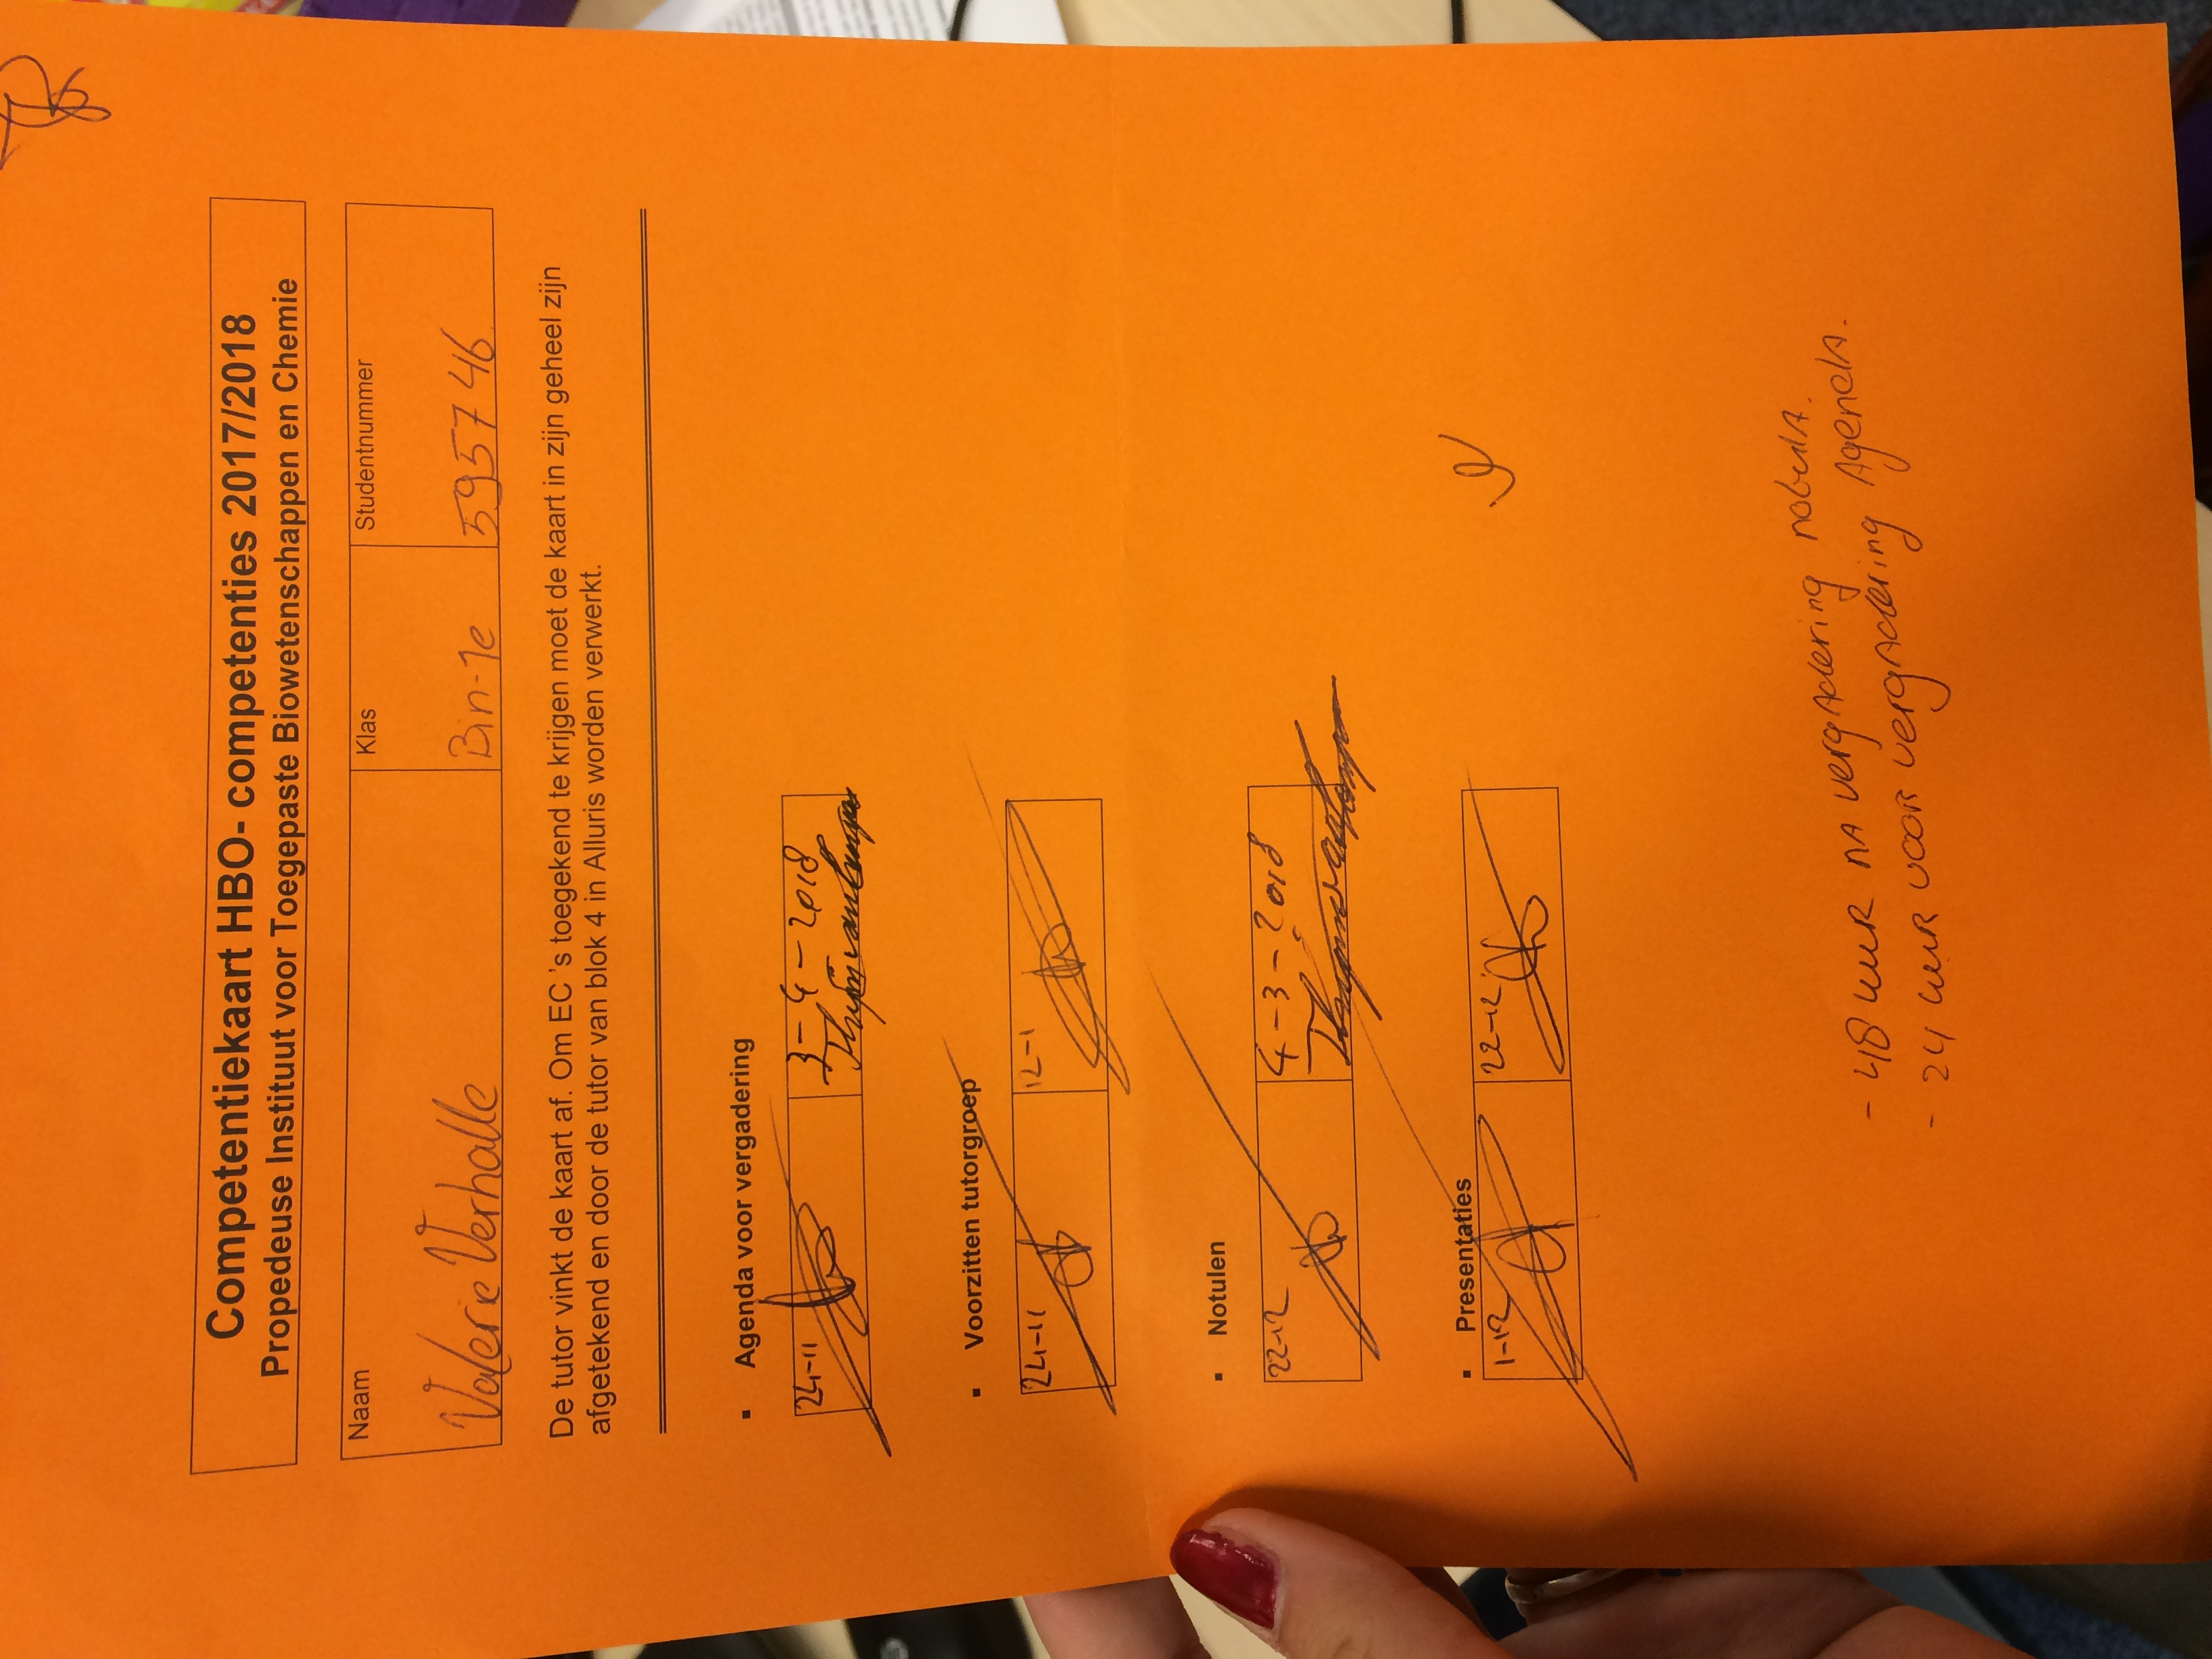 Competentiekaart HBO- competenties 2017/2018
Propedeuse Instituut voor Toegepaste Biowetenschappen en Chemie
Naam Klas Studentnummer
Valerie Verhalle Bin-1e 595746
De tutor vinkt de kaart af. Om EC 's toegekend te krijgen moet de kaart in zijn geheel zijn
afgetekend en door de tutor van blok 4 in Alluris worden verwerkt.
Agenda voor vergadering
24-11 3-4-2018
Voorzitten tutorgroep
24-11 12-1
Notulen
22-12 4-3-2018
Presentaties
1-12 22-12
- 48 uur na vergadering
- 24 uur voor vergadering Agenda.